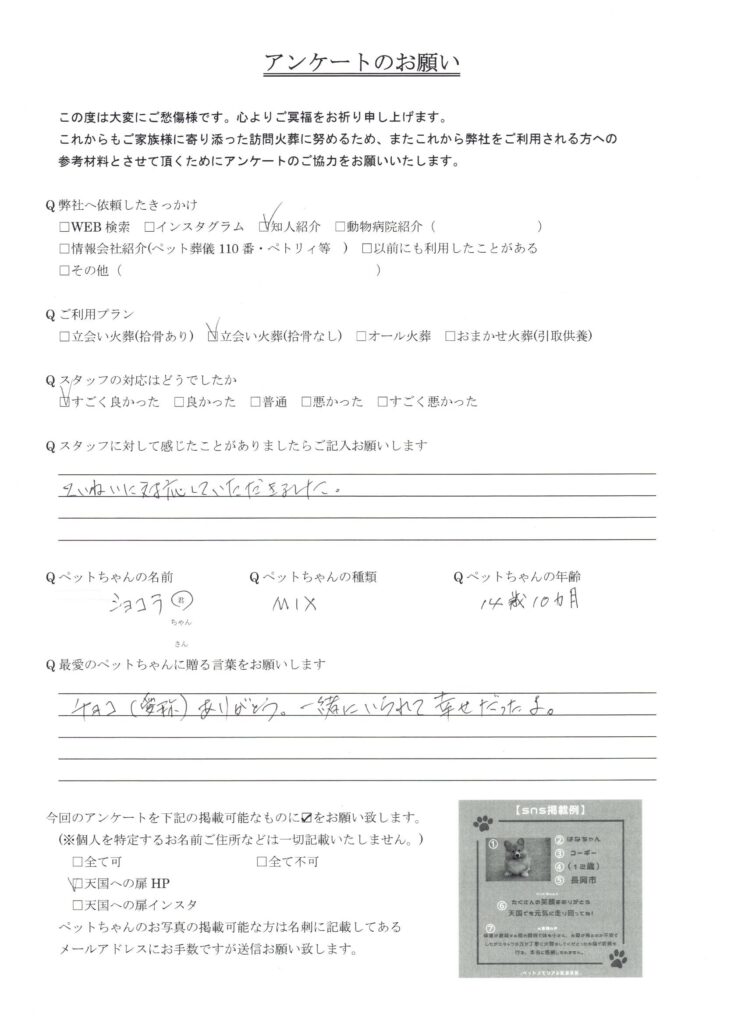 アンケートのお願い
この度は大変にご愁傷様です。心よりご冥福をお祈り申し上げます。
これからもご家族様に寄り添った訪問火葬に努めるため、またこれから弊社をご利用される方への
参考材料とさせて頂くためにアンケートのご協力をお願いいたします。
Q 弊社へ依頼したきっかけ
□WEB 検索 □インスタグラム ☑知人紹介 □動物病院紹介（ ）
□情報会社紹介(ペット葬儀 110 番・ペトリィ等 ) □以前にも利用したことがある
□その他（ ）
Q ご利用プラン
□立会い火葬(拾骨あり) ☑立会い火葬(拾骨なし) □オール火葬 □おまかせ火葬(引取供養)
Q スタッフの対応はどうでしたか
☑すごく良かった □良かった □普通 □悪かった □すごく悪かった
Q スタッフに対して感じたことがありましたらご記入お願いします
ていねいに対応していただきました。
Q ペットちゃんの名前 Q ペットちゃんの種類 Q ペットちゃんの年齢
ショコラ 君 MIX 14歳10カ月
ちゃん
さん
Q 最愛のペットちゃんに贈る言葉をお願いします
チョコ（愛称）ありがとう。一緒にいられて幸せだったよ。
今回のアンケートを下記の掲載可能なものに☑をお願い致します。
(※個人を特定するお名前ご住所などは一切記載いたしません。)
□全て可 □全て不可
☑天国への扉 HP
□天国への扉インスタ
ペットちゃんのお写真の掲載可能な方は名刺に記載してある
メールアドレスにお手数ですが送信お願い致します。
【sns掲載例】
① ② はなちゃん
③ コーギー
④ （12歳）
⑤ 長岡市
⑥ たくさんの笑顔をありがとう
天国でも元気に走り回ってね！
⑦